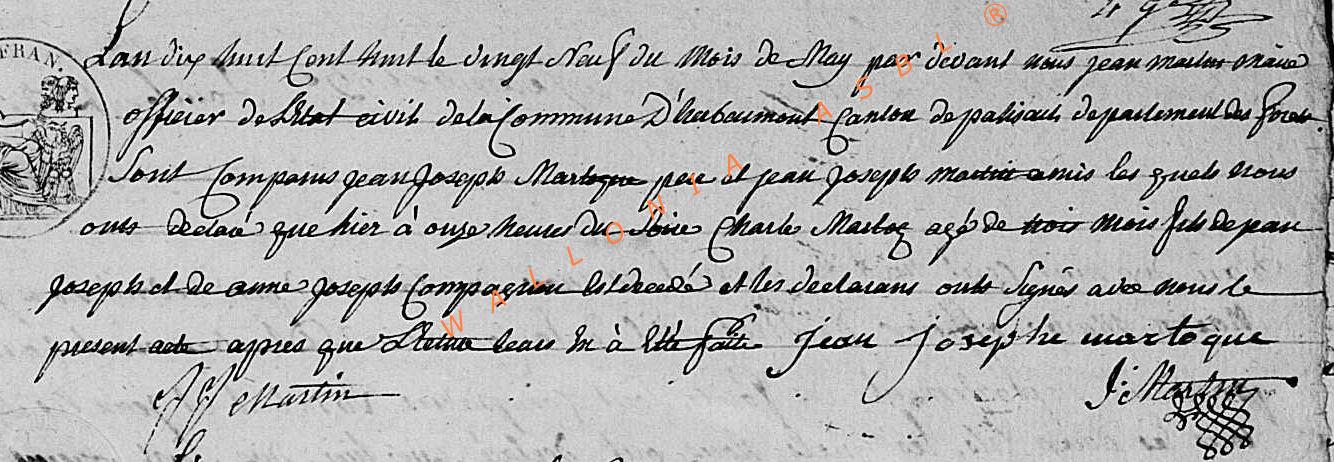 FRAN.
Lan dix huit Cent huit le vingt Neuf du Mois de May par devant nous jean martin maire
officier de L'Etat civil de la Commune D'herbeumont Canton de paliseul departement des forets
Sont Comparus jean Joseph Martoque pere et jean joseph martin amis les quels nous
onts declaré que hier à onze heures du Soire Charle Martoq agé de trois Mois fils de jean
joseph et de anne joseph Compagnon Est decedé et les declarans onts Signés avec nous le
present acte apres que Lecture leurs En à Eté faite jean josephe martoque
JJ Martin J: Martin
WALLONIA ASBL ®